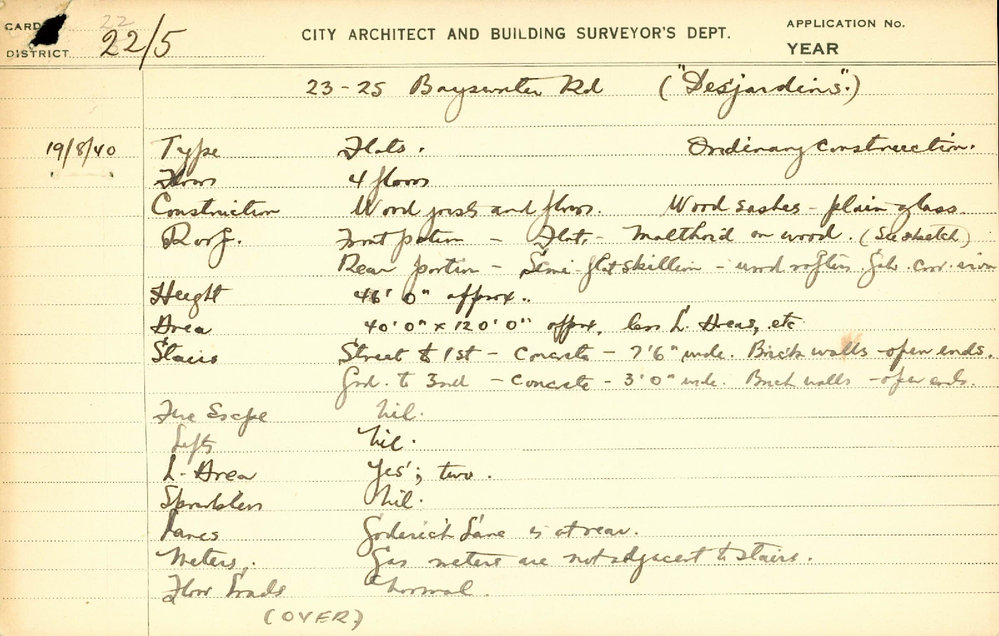 CARD
DISTRICT 22
22/5
CITY ARCHITECT AND BUILDING SURVEYOR'S DEPT.
APPLICATION No.
YEAR
23-25 Bayswater Rd ("Desjardins".)
19/8/40 Type Flats. Ordinary construction.
Floors 4 floors
Construction Wood joists and floors. Wood sashes - plain glass.
Roof. Front portion - Flat, - Malthoid on wood. (See sketch)
Rear portion - Semi flat skillion - wood rafters. Galv. corr. iron
Height 46' 0" approx..
Area 40' 0" x 120' 0" approx. less L. Areas, etc
Stairs Street to 1st - Concrete - 7'6" wide. Brick walls - open ends.
Grd. to 3rd - Concrete - 3'0" wide. Brick walls - open ends.
Fire Escape Nil.
Lifts Nil.
L. Area Yes; two.
Sprinklers Nil.
Lanes Goderich Lane is at rear.
Meters. Gas meters are not adjacent to stairs.
Floor Loads Normal.
(OVER)